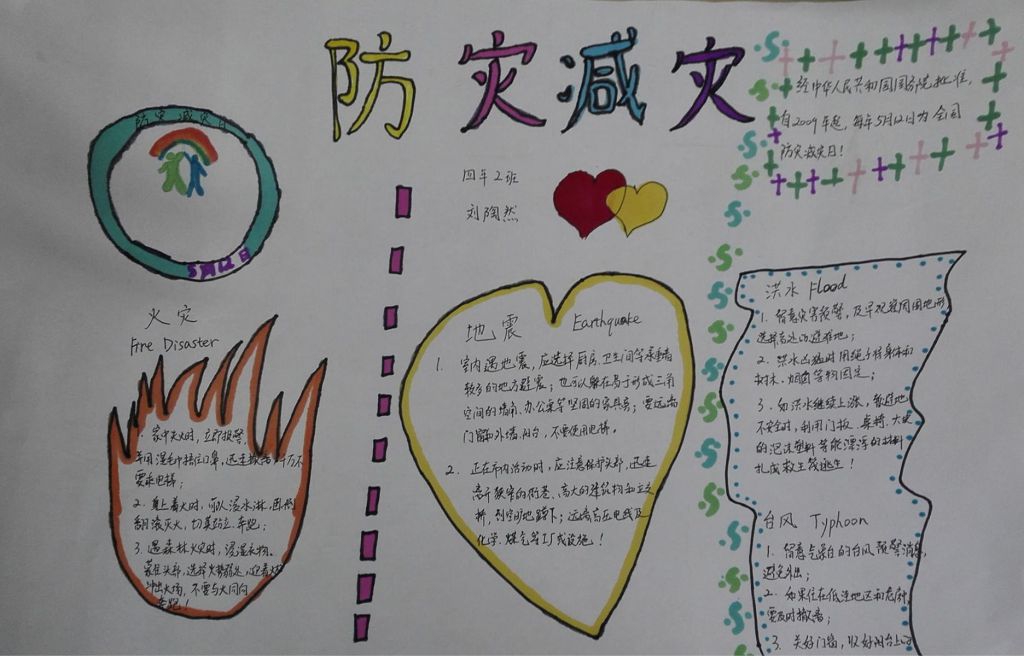 防灾减灾
经中华人民共和国国务院批准,
自2009年起,每年5月12日为全国
防灾减灾日!
防灾减灾日
5月12日
四年2班
刘陶然
火灾
Fire Disaster
1. 家中失火时,立即报警,
并用湿毛巾捂住口鼻,迅速撤离,千万不
要乘电梯;
2. 身上着火时,可以浇水淋,
翻滚灭火,切莫站立、奔跑;
3. 遇森林火灾时,浸湿衣物。
蒙住头部,选择火势弱处,迎着火
冲出火海,不要与火同向
奔跑!
地震 Earthquake
1. 室内遇地震,应选择厨房、卫生间等承重墙
较多的地方避震;也可以躲在易于形成三角
空间的墙角、办公桌等坚固的家具旁;要远离
门窗和外墙、阳台,不要使用电梯。
2. 正在市内活动时,应注意保护头部,迅速
离开狭窄的街巷、高大的建筑物和立交
桥,到空旷地蹲下;远离高压电线及
化学、煤气等工厂或设施!
洪水 Flood
1. 留意灾害预警,及早观察周围地形,
选择高处的避难地;
2. 洪水凶猛时用绳子将身体和
树木、烟囱等物固定;
3. 如洪水继续上涨,暂避地
不安全时,利用门板、桌椅、大块
的泡沫塑料等能漂浮的材料
扎成救生筏逃生!
台风 Typhoon
1. 留意气象台的台风预警消息,
避免外出;
2. 如果住在低洼地区和危房
要及时撤离;
3. 关好门窗,收好阳台上的